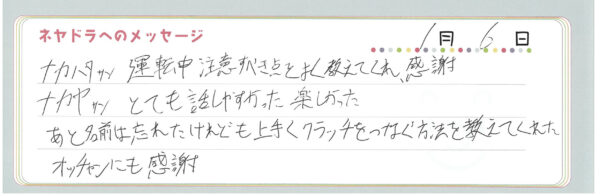 ネヤドラへのメッセージ
1月6日
ナカハタサン 運転中注意すべき点をよく教えてくれ、感謝
ナカヤサン とても話しやすかった 楽しかった
あと名前は忘れたけれども上手くクラッチをつなぐ方法を教えてくれた
オッチャンにも感謝